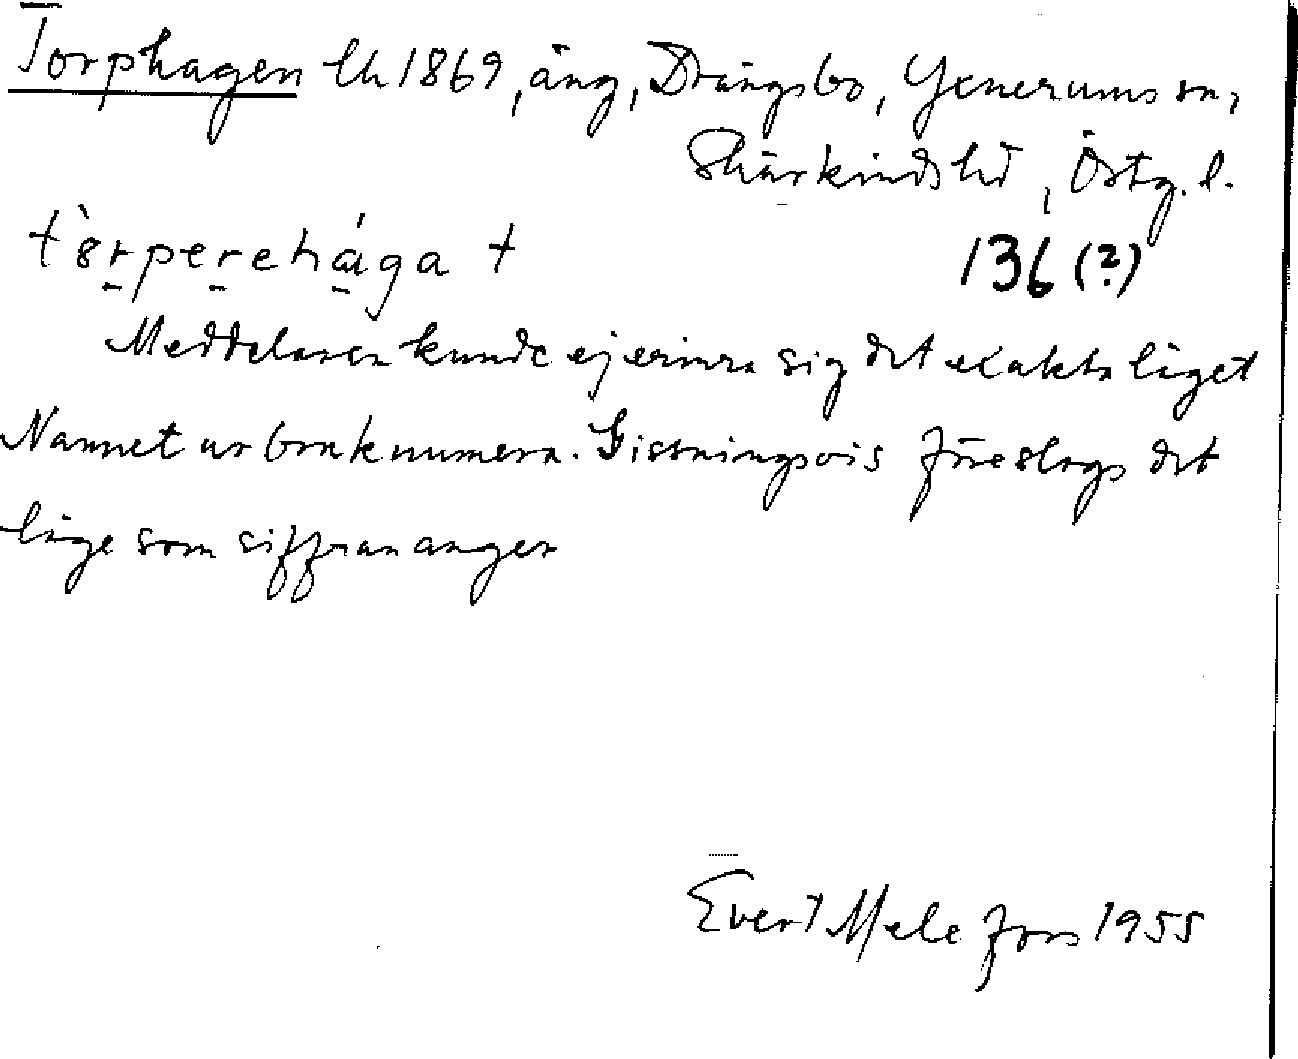 Torphagen lh 1869, äng, Drängsbo, Yxnerums sn,
Skärkinds hd, Östg. l.
136 (?)
Meddelaren kunde ej erinra sig det exakta läget
Namnet ur bruk numera. Gissningsvis föreslogs det
läge som siffran anger
Evert Mele fors 1955